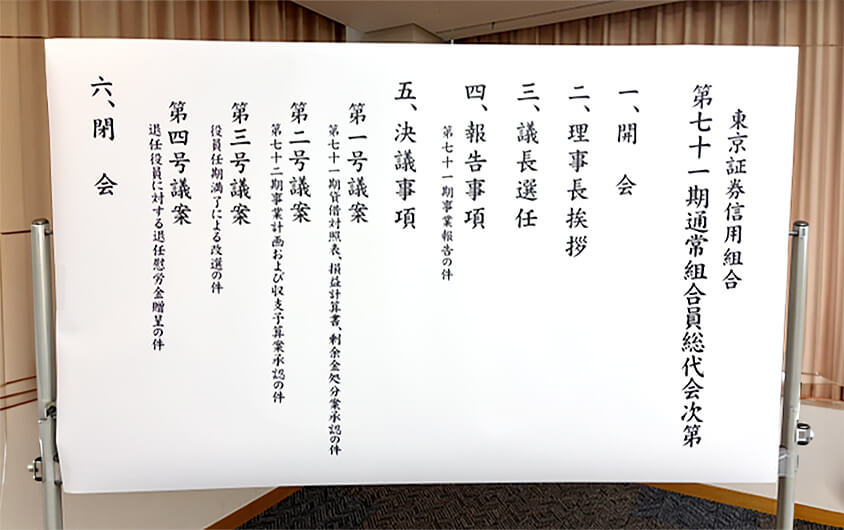 東京証券信用組合
第七十一期通常組合員総代会次第
一、開会
二、理事長挨拶
三、議長選任
四、報告事項
第七十一期事業報告の件
五、決議事項
第一号議案
第七十一期貸借対照表、損益計算書、剰余金処分案承認の件
第二号議案
第七十二期事業計画および収支予算案承認の件
第三号議案
役員任期満了による改選の件
第四号議案
退任役員に対する退任慰労金贈呈の件
六、閉会